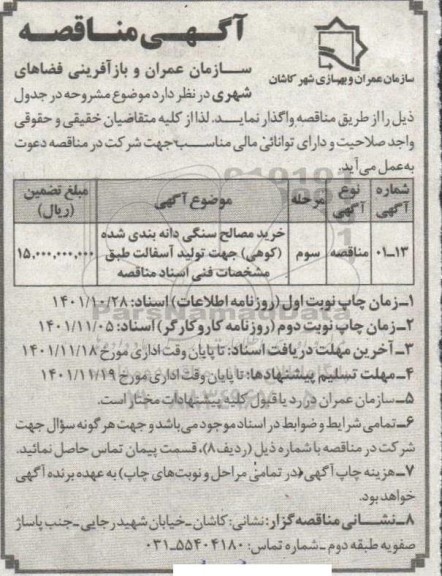 آگهی مناقصه
سازمان عمران و بهسازی شهر کاشان
سازمان عمران و بازآفرینی فضاهای
شهری در نظر دارد موضوع مشروحه در جدول
ذیل را از طریق مناقصه واگذار نماید. لذا از کلیه متقاضیان حقیقی و حقوقی
واجد صلاحیت و دارای توانائی مالی مناسب جهت شرکت در مناقصه دعوت
به عمل می آید.
شماره آگهی | نوع آگهی | مرحله | موضوع آگهی | مبلغ تضمین (ریال)
۱۳-۰۱ | مناقصه | سوم | خرید مصالح سنگی دانه بندی شده (کوهی) جهت تولید آسفالت طبق مشخصات فنی اسناد مناقصه | ۱۵,۰۰۰,۰۰۰,۰۰۰
۱ـ زمان چاپ نوبت اول (روزنامه اطلاعات) اسناد: ۱۴۰۱/۱۰/۲۸
۲ـ زمان چاپ نوبت دوم (روزنامه کار و کارگر) اسناد: ۱۴۰۱/۱۱/۰۵
۳ـ آخرین مهلت دریافت اسناد: تا پایان وقت اداری مورخ ۱۴۰۱/۱۱/۱۸
۴ـ مهلت تسلیم پیشنهادها: تا پایان وقت اداری مورخ ۱۴۰۱/۱۱/۱۹
۵ـ سازمان عمران در رد یا قبول کلیه پیشنهادات مختار است.
۶ـ تمامی شرایط و ضوابط در اسناد موجود می باشد و جهت هر گونه سؤال جهت
شرکت در مناقصه با شماره ذیل (ردیف ۸)، قسمت پیمان تماس حاصل نمائید.
۷ـ هزینه چاپ آگهی (در تمامی مراحل و نوبت های چاپ) به عهده برنده آگهی
خواهد بود.
۸ـ نشانی مناقصه گزار: نشانی: کاشان ـ خیابان شهید رجایی ـ جنب پاساژ
صفویه طبقه دوم ـ شماره تماس: ۵۵۴۰۴۱۸۰-۰۳۱
ParsNamadData